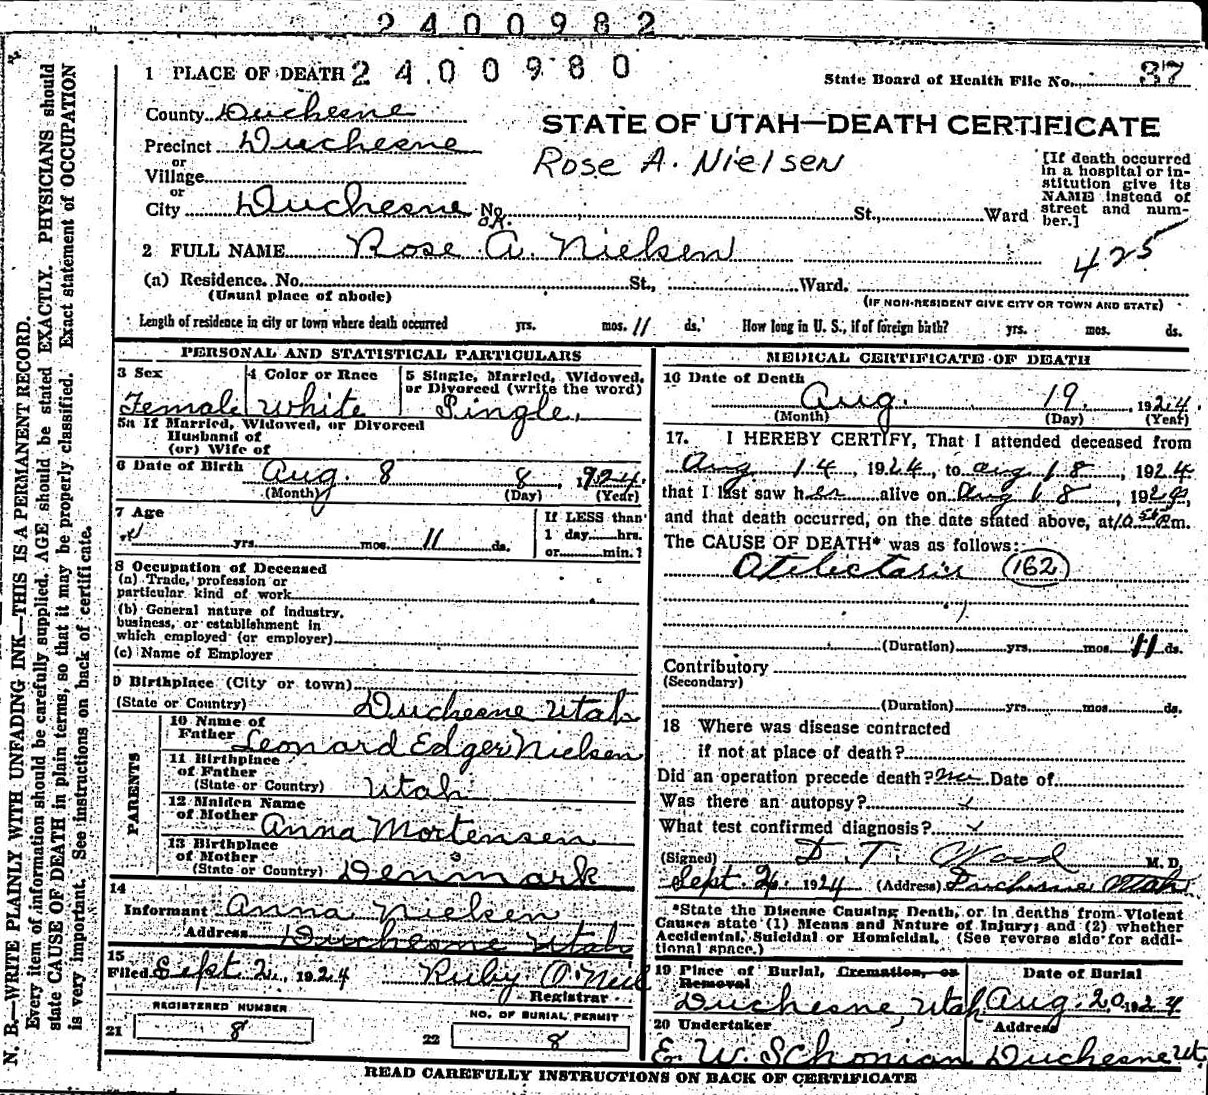 2400982
1 PLACE OF DEATH 2400980
State Board of Health File No. 37
County Duchesne
STATE OF UTAH—DEATH CERTIFICATE
Precinct Duchesne
Rose A. Nielsen
or
Village
or
City Duchesne No. St., Ward
or
[If death occurred
in a hospital or in-
stitution give its
NAME instead of
street and num-
ber.]
2 FULL NAME Rose A. Nielsen
425
(a) Residence. No. St., Ward.
(Usual place of abode)
(IF NON-RESIDENT GIVE CITY OR TOWN AND STATE)
Length of residence in city or town where death occurred yrs. mos. 11 ds. How long in U. S., if of foreign birth? yrs. mos. ds.
PERSONAL AND STATISTICAL PARTICULARS
3 Sex
Female
4 Color or Race
White
5 Single, Married, Widowed,
or Divorced (write the word)
Single.
5a If Married, Widowed, or Divorced
Husband of
(or) Wife of
6 Date of Birth Aug. 8 8, 1924.
(Month) (Day) (Year)
7 Age
yrs. mos. 11 ds.
If LESS than
1 day hrs.
or min.?
8 Occupation of Deceased
(a) Trade, profession or
particular kind of work
(b) General nature of industry,
business, or establishment in
which employed (or employer)
(c) Name of Employer
9 Birthplace (City or town)
(State or Country) Duchesne Utah
PARENTS
10 Name of
Father Leonard Edger Nielsen
11 Birthplace
of Father
(State or Country) Utah
12 Maiden Name
of Mother Anna Mortensen
13 Birthplace
of Mother
(State or Country) Denmark
14
Informant Anna Nielsen
Address Duchesne Utah
15
Filed Sept 2, 1924 Ruby O'Neil
Registrar
REGISTERED NUMBER
21 8
NO. OF BURIAL PERMIT
22 8
MEDICAL CERTIFICATE OF DEATH
16 Date of Death
Aug. 19, 1924
(Month) (Day) (Year)
17. I HEREBY CERTIFY, That I attended deceased from
Aug. 14, 1924, to Aug 18, 1924
that I last saw her alive on Aug 18, 1924,
and that death occurred, on the date stated above, at 10 50 P.m.
The CAUSE OF DEATH* was as follows:
Atilectasis (162)
(Duration) yrs. mos. 11 ds.
Contributory
(Secondary)
(Duration) yrs. mos. ds.
18 Where was disease contracted
if not at place of death?
Did an operation precede death? no Date of
Was there an autopsy?
What test confirmed diagnosis?
(Signed) D. T. Wood M. D.
Sept. 2, 1924 (Address) Duchesne Utah
*State the Disease Causing Death, or in deaths from Violent
Causes state (1) Means and Nature of Injury; and (2) whether
Accidental, Suicidal or Homicidal. (See reverse side for addi-
tional space.)
19 Place of Burial, Cremation, or
Removal
Duchesne, Utah
Date of Burial
Aug. 20, 1924
20 Undertaker
E. W. Schonian
Address
Duchesne Ut.
READ CAREFULLY INSTRUCTIONS ON BACK OF CERTIFICATE
N. B.—WRITE PLAINLY WITH UNFADING INK—THIS IS A PERMANENT RECORD.
Every item of information should be carefully supplied. AGE should be stated EXACTLY. PHYSICIANS should
state CAUSE OF DEATH in plain terms, so that it may be properly classified. Exact statement of OCCUPATION
is very important. See instructions on back of certificate.